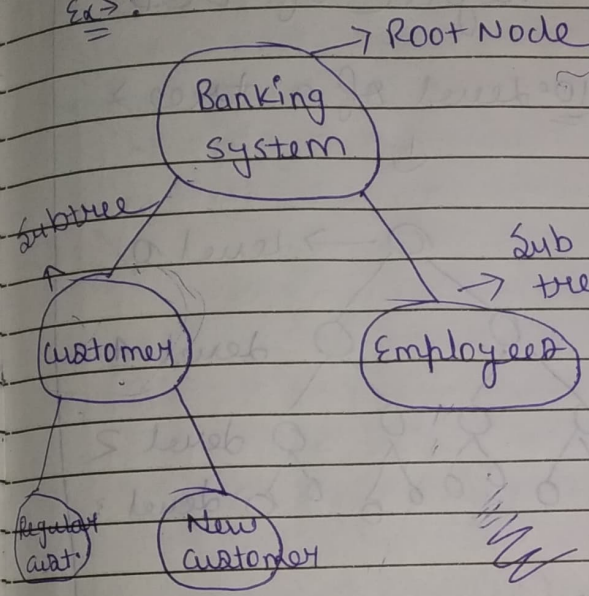 Ex →
→ Root Node
Banking
system
Subtree
Sub
→ tre
Customer
Employees
Regular
cust.
New
customer